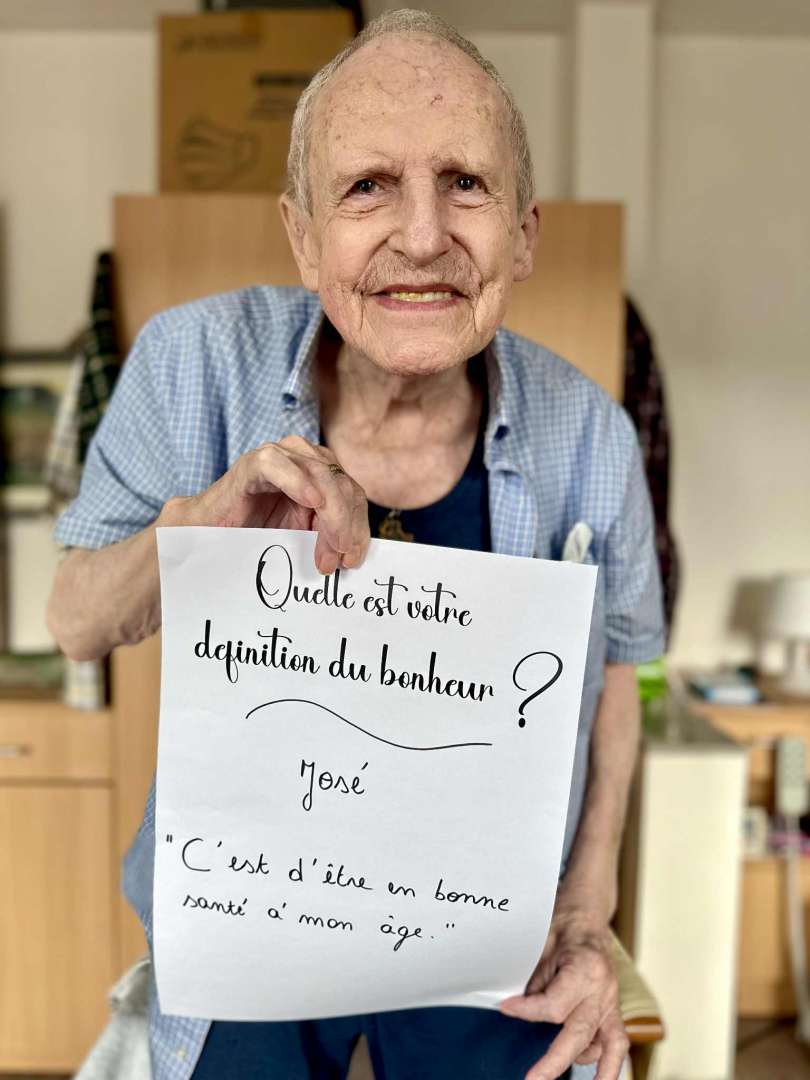 Quelle est votre
definition du bonheur ?
José
"C'est d'être en bonne
santé à mon âge."